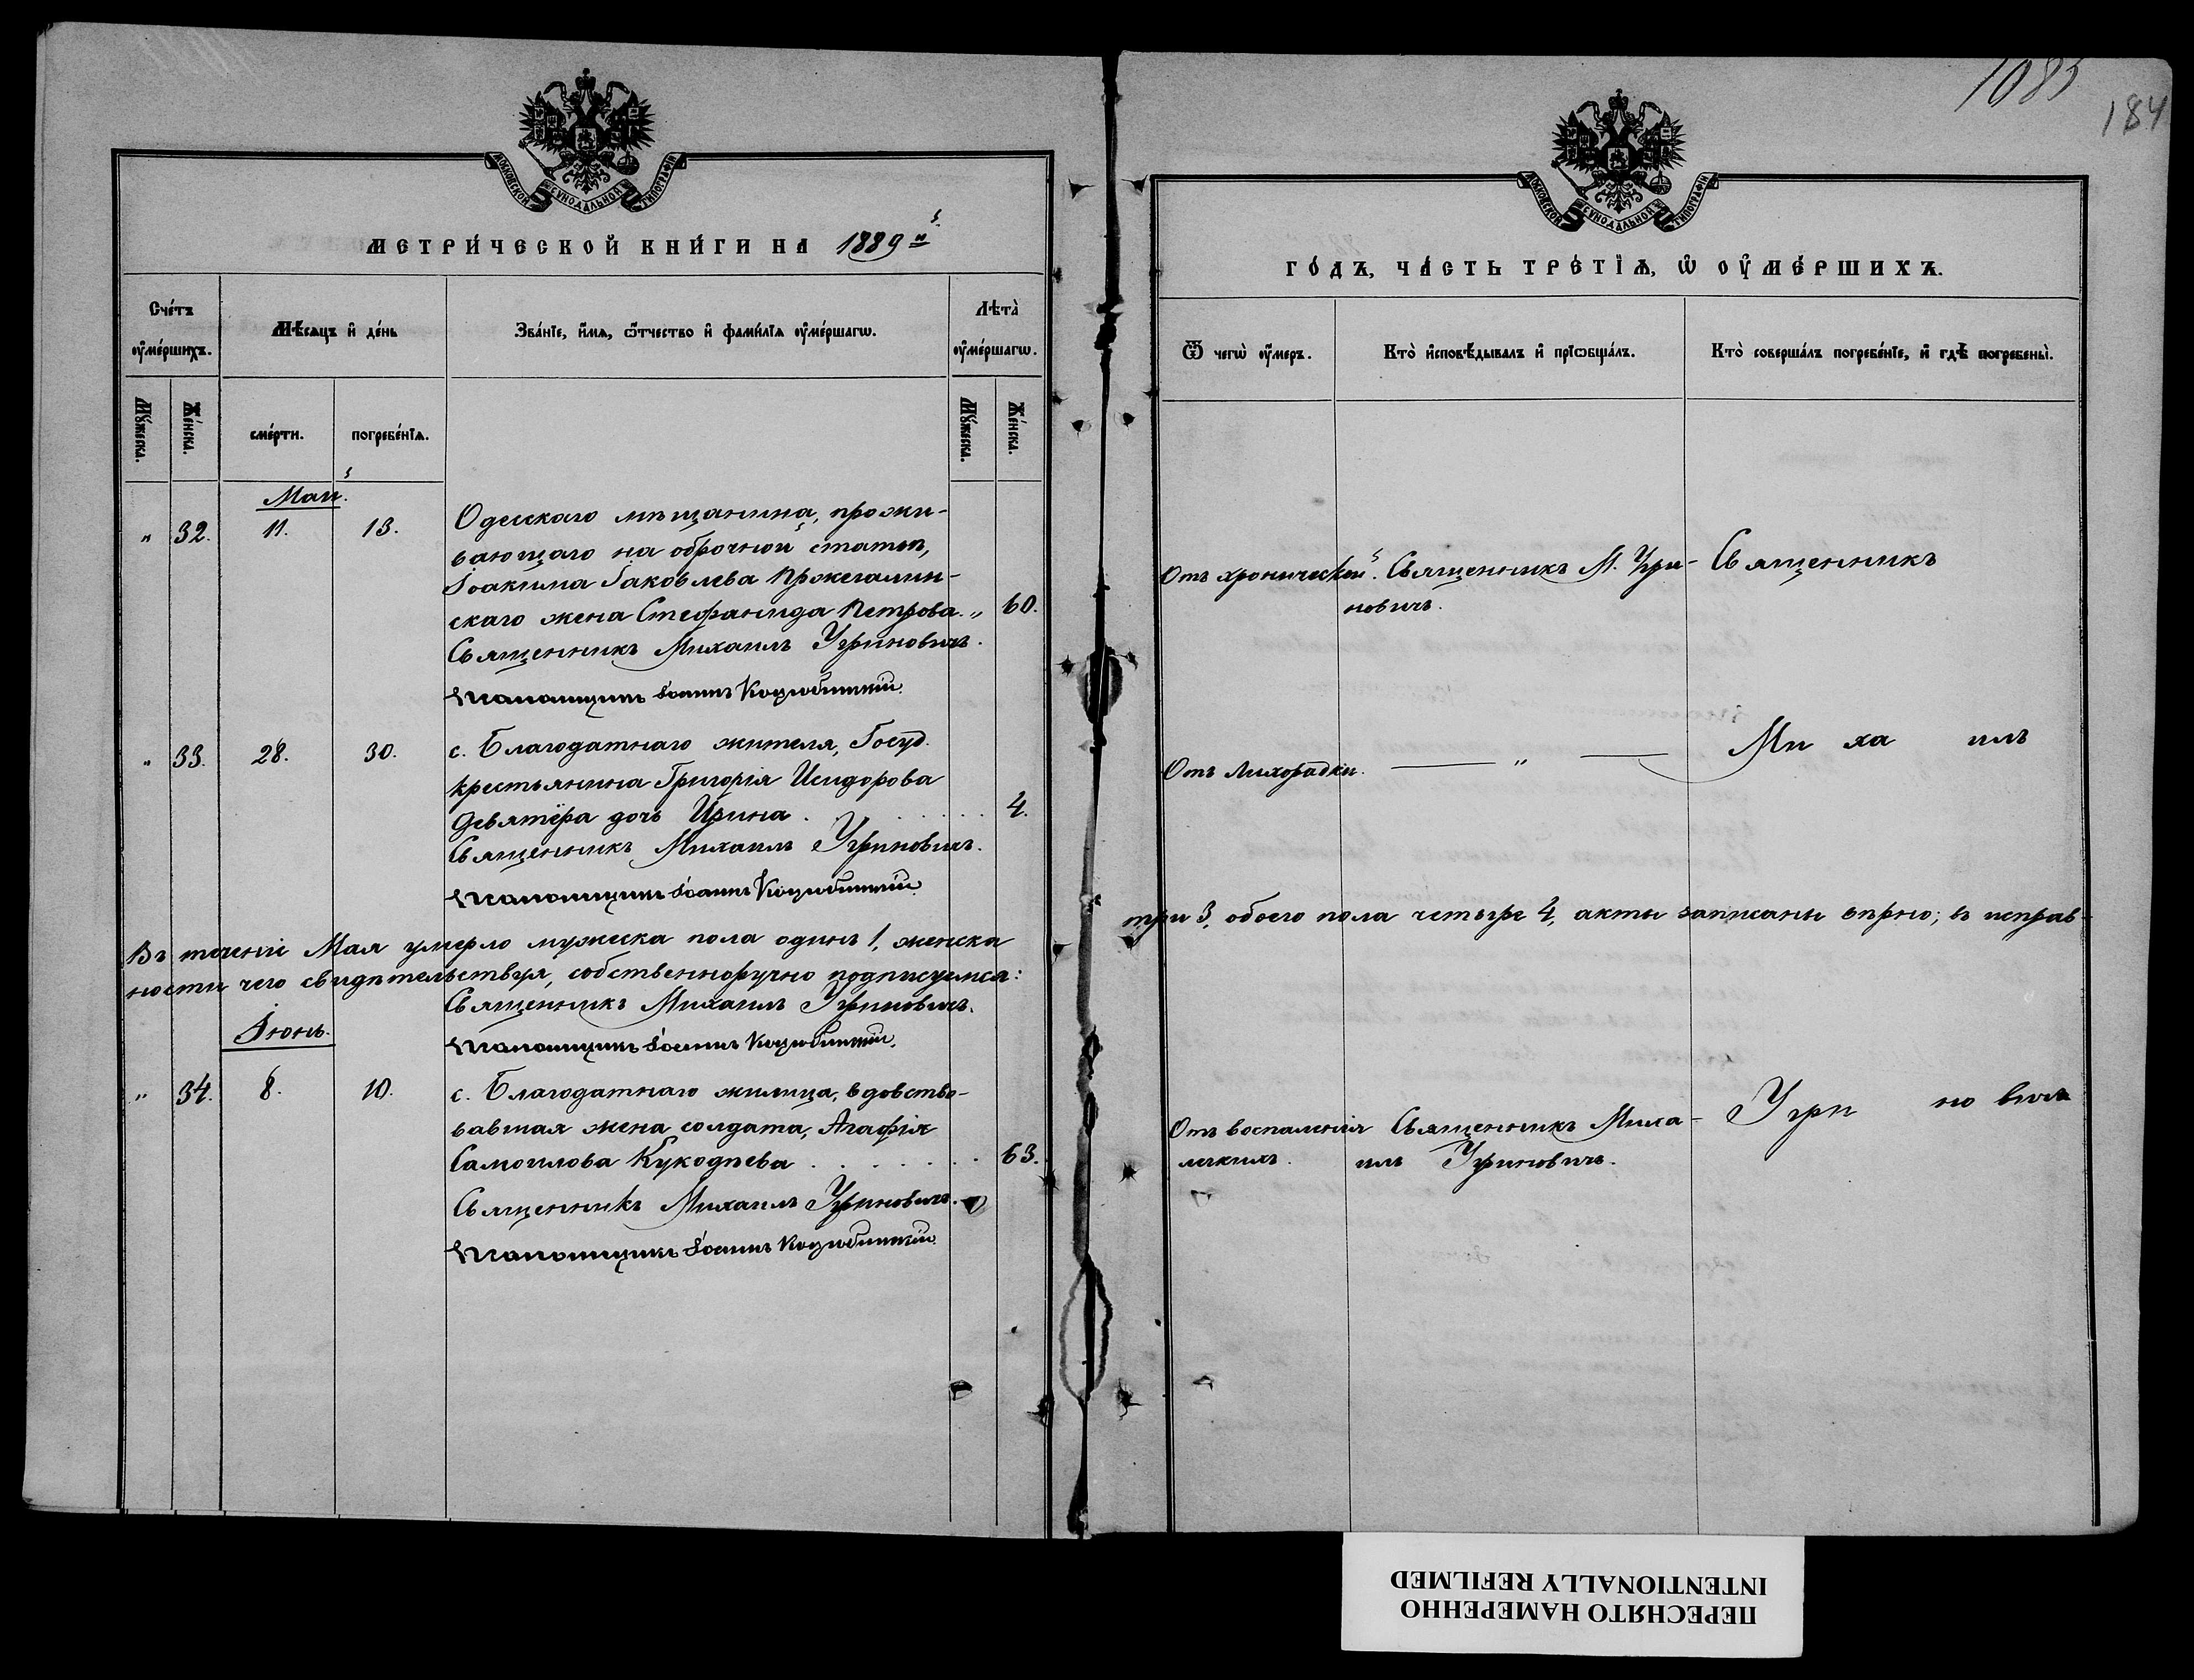 1085
184
МОСКОВСКОЙ СѴНОДАЛЬНОЙ ТИПОГРАФІИ
МОСКОВСКОЙ СѴНОДАЛЬНОЙ ТИПОГРАФІИ
МЕТРИ́ЧЕСКОЙ КНИ́ГИ НА 1889й
ГО́ДЪ, ЧА́СТЬ ТРЕ́ТІѦ, Ѡ҆ ОУ҆МЕ́РШИХЪ.
Сче́тъ оу҆ме́ршихъ.
Мѣ́сяцъ и҆ де́нь
Зва́ніе, и҆́мѧ, ѻ҆́тчество и҆ фами́лїѧ оу҆ме́ршагѡ.
Лѣта̀ оу҆ме́ршагѡ.
Ѿ чегѡ̀ оу҆́меръ.
Кто̀ и҆сповѣ́дывалъ и҆ прїѡбща́лъ.
Кто̀ соверша́лъ погребе́нїе, и҆ гдѣ̀ погребены̀.
Мꙋ́жеска.
Же́нска.
сме́рти.
погребе́нїѧ.
Мꙋ́жеска.
Же́нска.
Май.
" 32. 11. 13. Одесскаго мѣщанина, прожи-
вающаго на оброчной статьѣ,
Іоакима Іаковлева
скаго жена Стефанида Петрова. " 60.
Священникъ Михаилъ Угриновичъ.
Псаломщикъ Іоаннъ Коцюбинскій.
Отъ хронической. Священникъ М. Угри-
новичъ.
Священникъ
" 33. 28. 30. с. Благодатнаго жителя, Госуд.
крестьянина Григорія Исидорова
Девятёра дочь Ирина . . . . . 4.
Священникъ Михаилъ Угриновичъ.
Псаломщикъ Іоаннъ Коцюбинскій.
Отъ лихорадки. — " —
Михаилъ
Въ теченіе Мая умерло мужеска пола одинъ 1, женска
три 3, обоего пола четыре 4, акты записаны вѣрно; въ исправ-
ности чего свидѣтельствуя, собственноручно подписуемся:
Священникъ Михаилъ Угриновичъ.
Псаломщикъ Іоаннъ Коцюбинскій.
Іюнь.
" 34. 8. 10. с. Благодатнаго жилица, вдовство-
вавшая жена солдата, Агафія
Самоилова Кукодѣева . . . . . 63.
Священникъ Михаилъ Угриновичъ.
Псаломщикъ Іоаннъ Коцюбинскій.
Отъ воспаленія
легкихъ.
Священникъ Миха-
илъ Угриновичъ.
Угриновичъ
ПЕРЕСНЯТО НАМЕРЕННО
INTENTIONALLY REFILMED